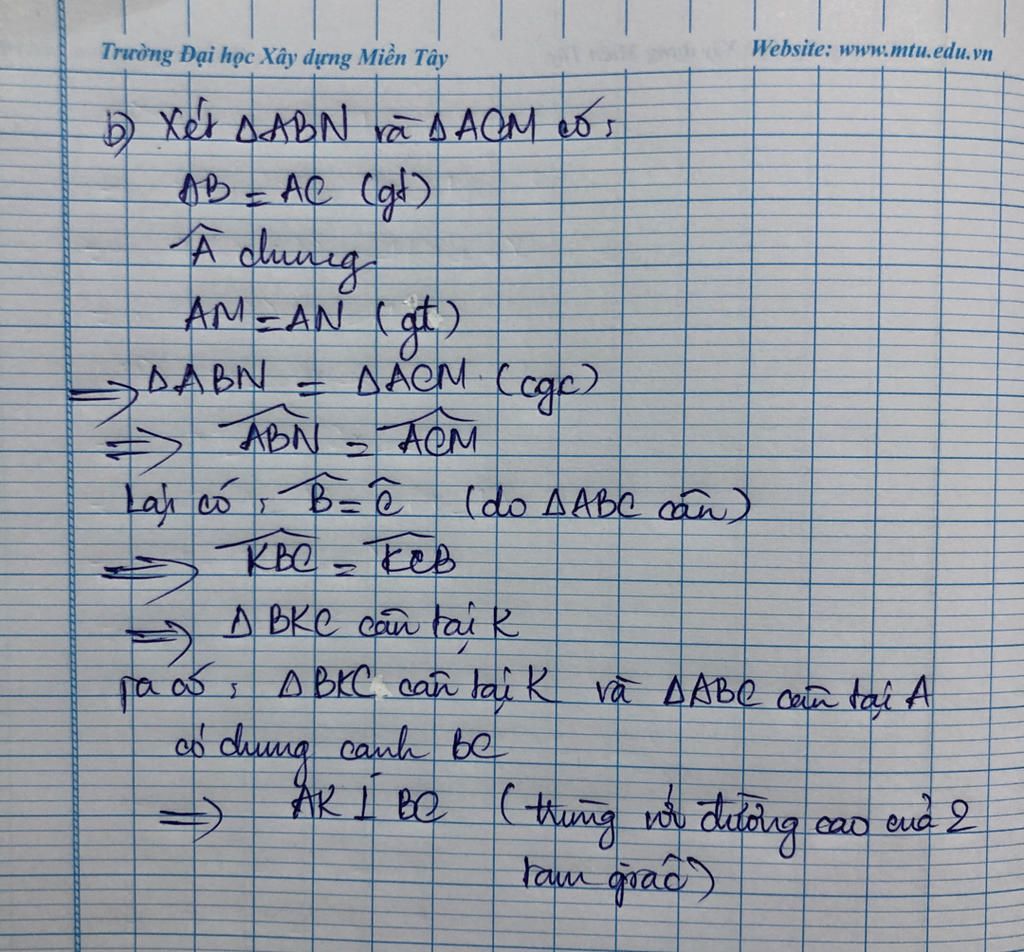 Trường Đại học Xây dựng Miền Tây Website: www.mtu.edu.vn
b) Xét ΔABN và ΔACM có:
AB = AC (gt)
Â chung
AM = AN (gt)
=> ΔABN = ΔACM (cgc)
=> \widehat{ABN} = \widehat{ACM}
Lại có: \widehat{B} = \widehat{C} (do ΔABC cân)
=> \widehat{KBC} = \widehat{KCB}
=> ΔBKC cân tại K
Ta có: ΔBKC cân tại K và ΔABC cân tại A
có chung cạnh BC
=> AK ⊥ BC (trùng với đường cao của 2
tam giác)